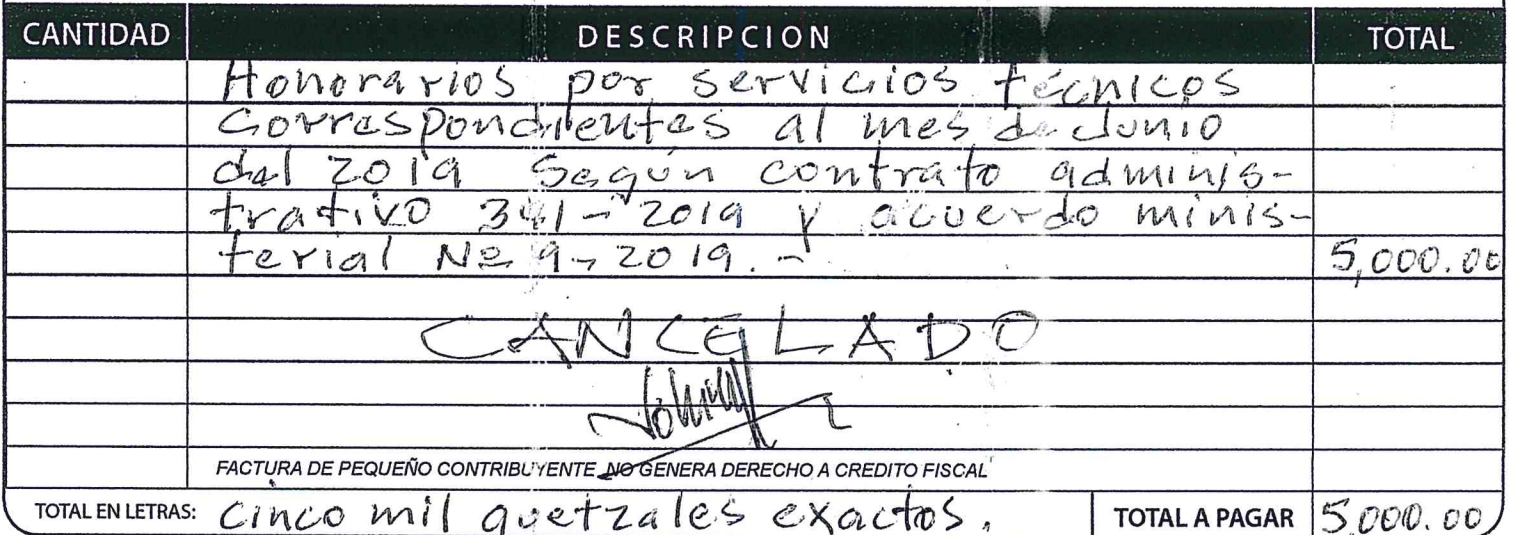 CANTIDAD DESCRIPCION TOTAL
Honorarios por servicios técnicos
Correspondientes al mes de Junio
del 2019 Según contrato adminis-
trativo 341-2019 y acuerdo minis-
terial Nº 9-2019.- 5,000.00
CANCELADO
FACTURA DE PEQUEÑO CONTRIBUYENTE NO GENERA DERECHO A CREDITO FISCAL
TOTAL EN LETRAS: Cinco mil quetzales exactos. TOTAL A PAGAR 5,000.00